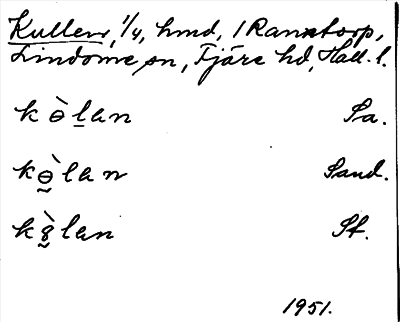 Kullen, 1/4, hmd, 1 Ramntorp,
Lindome sn, Fjäre hd, Hall. l.
kɵ̀l̠an Sa.
kɵ̰̀lan Sand.
kɣ̰̀lan Sf.
1951.